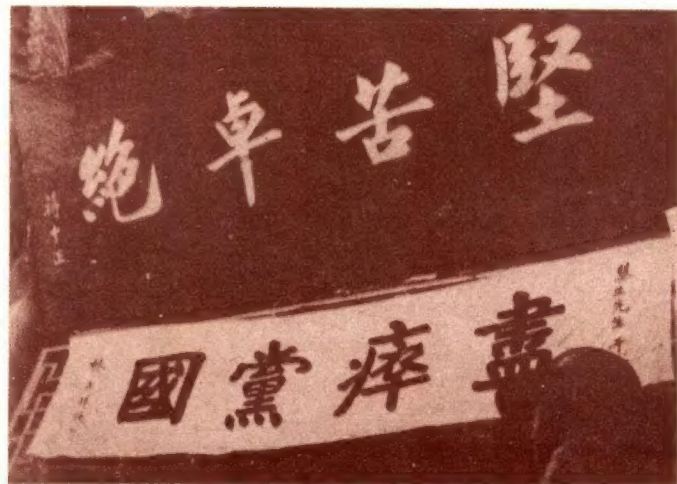 堅苦卓絕
蔣中正
盡瘁黨國